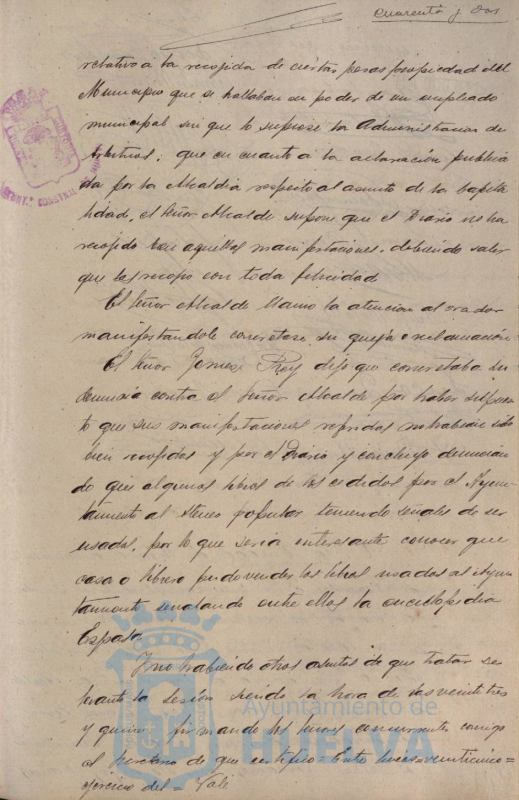 Cuarenta y dos
relativo a la recogida de ciertas pesas propiedad del
Municipio que se hallaban en poder de un empleado
municipal sin que lo supiese la Administracion de
Arbitrios; que en cuanto a la aclaración publica
da por la Alcaldia respecto al asunto de la
lidad, el Señor Alcalde supone que el Diario no ha
recojido bien aquellas manifestaciones, debiendo saber
que las recojio con toda felicidad
El Señor Alcalde llamó la atencion al orador
manifestandole concretase su queja o reclamación
El Señor Gomez Roy dijo que concretaba su
denuncia contra el Señor Alcalde por haber
to que sus manifestaciones referidas no habian sido
bien recojidas y por el Diario y concluyo denuncian
do que algunos libros de los cedidos por el Ayun-
tamiento al Ateneo popular teniendo señales de ser
usados, por lo que seria interesante conocer que
casa o librero pudo vender los libros usados al Ayun
tamiento señalando entre ellos la enciclopedia
Espasa
Y no habiendo otros asuntos de que tratar se
levanto la sesión siendo la hora de las veintitres
y quince firmando los señores concurrentes conmigo
el Secretario de que certifico = Entre = veinticinco =
ejercicio del = Vale
Ayuntamiento de
HUELVA